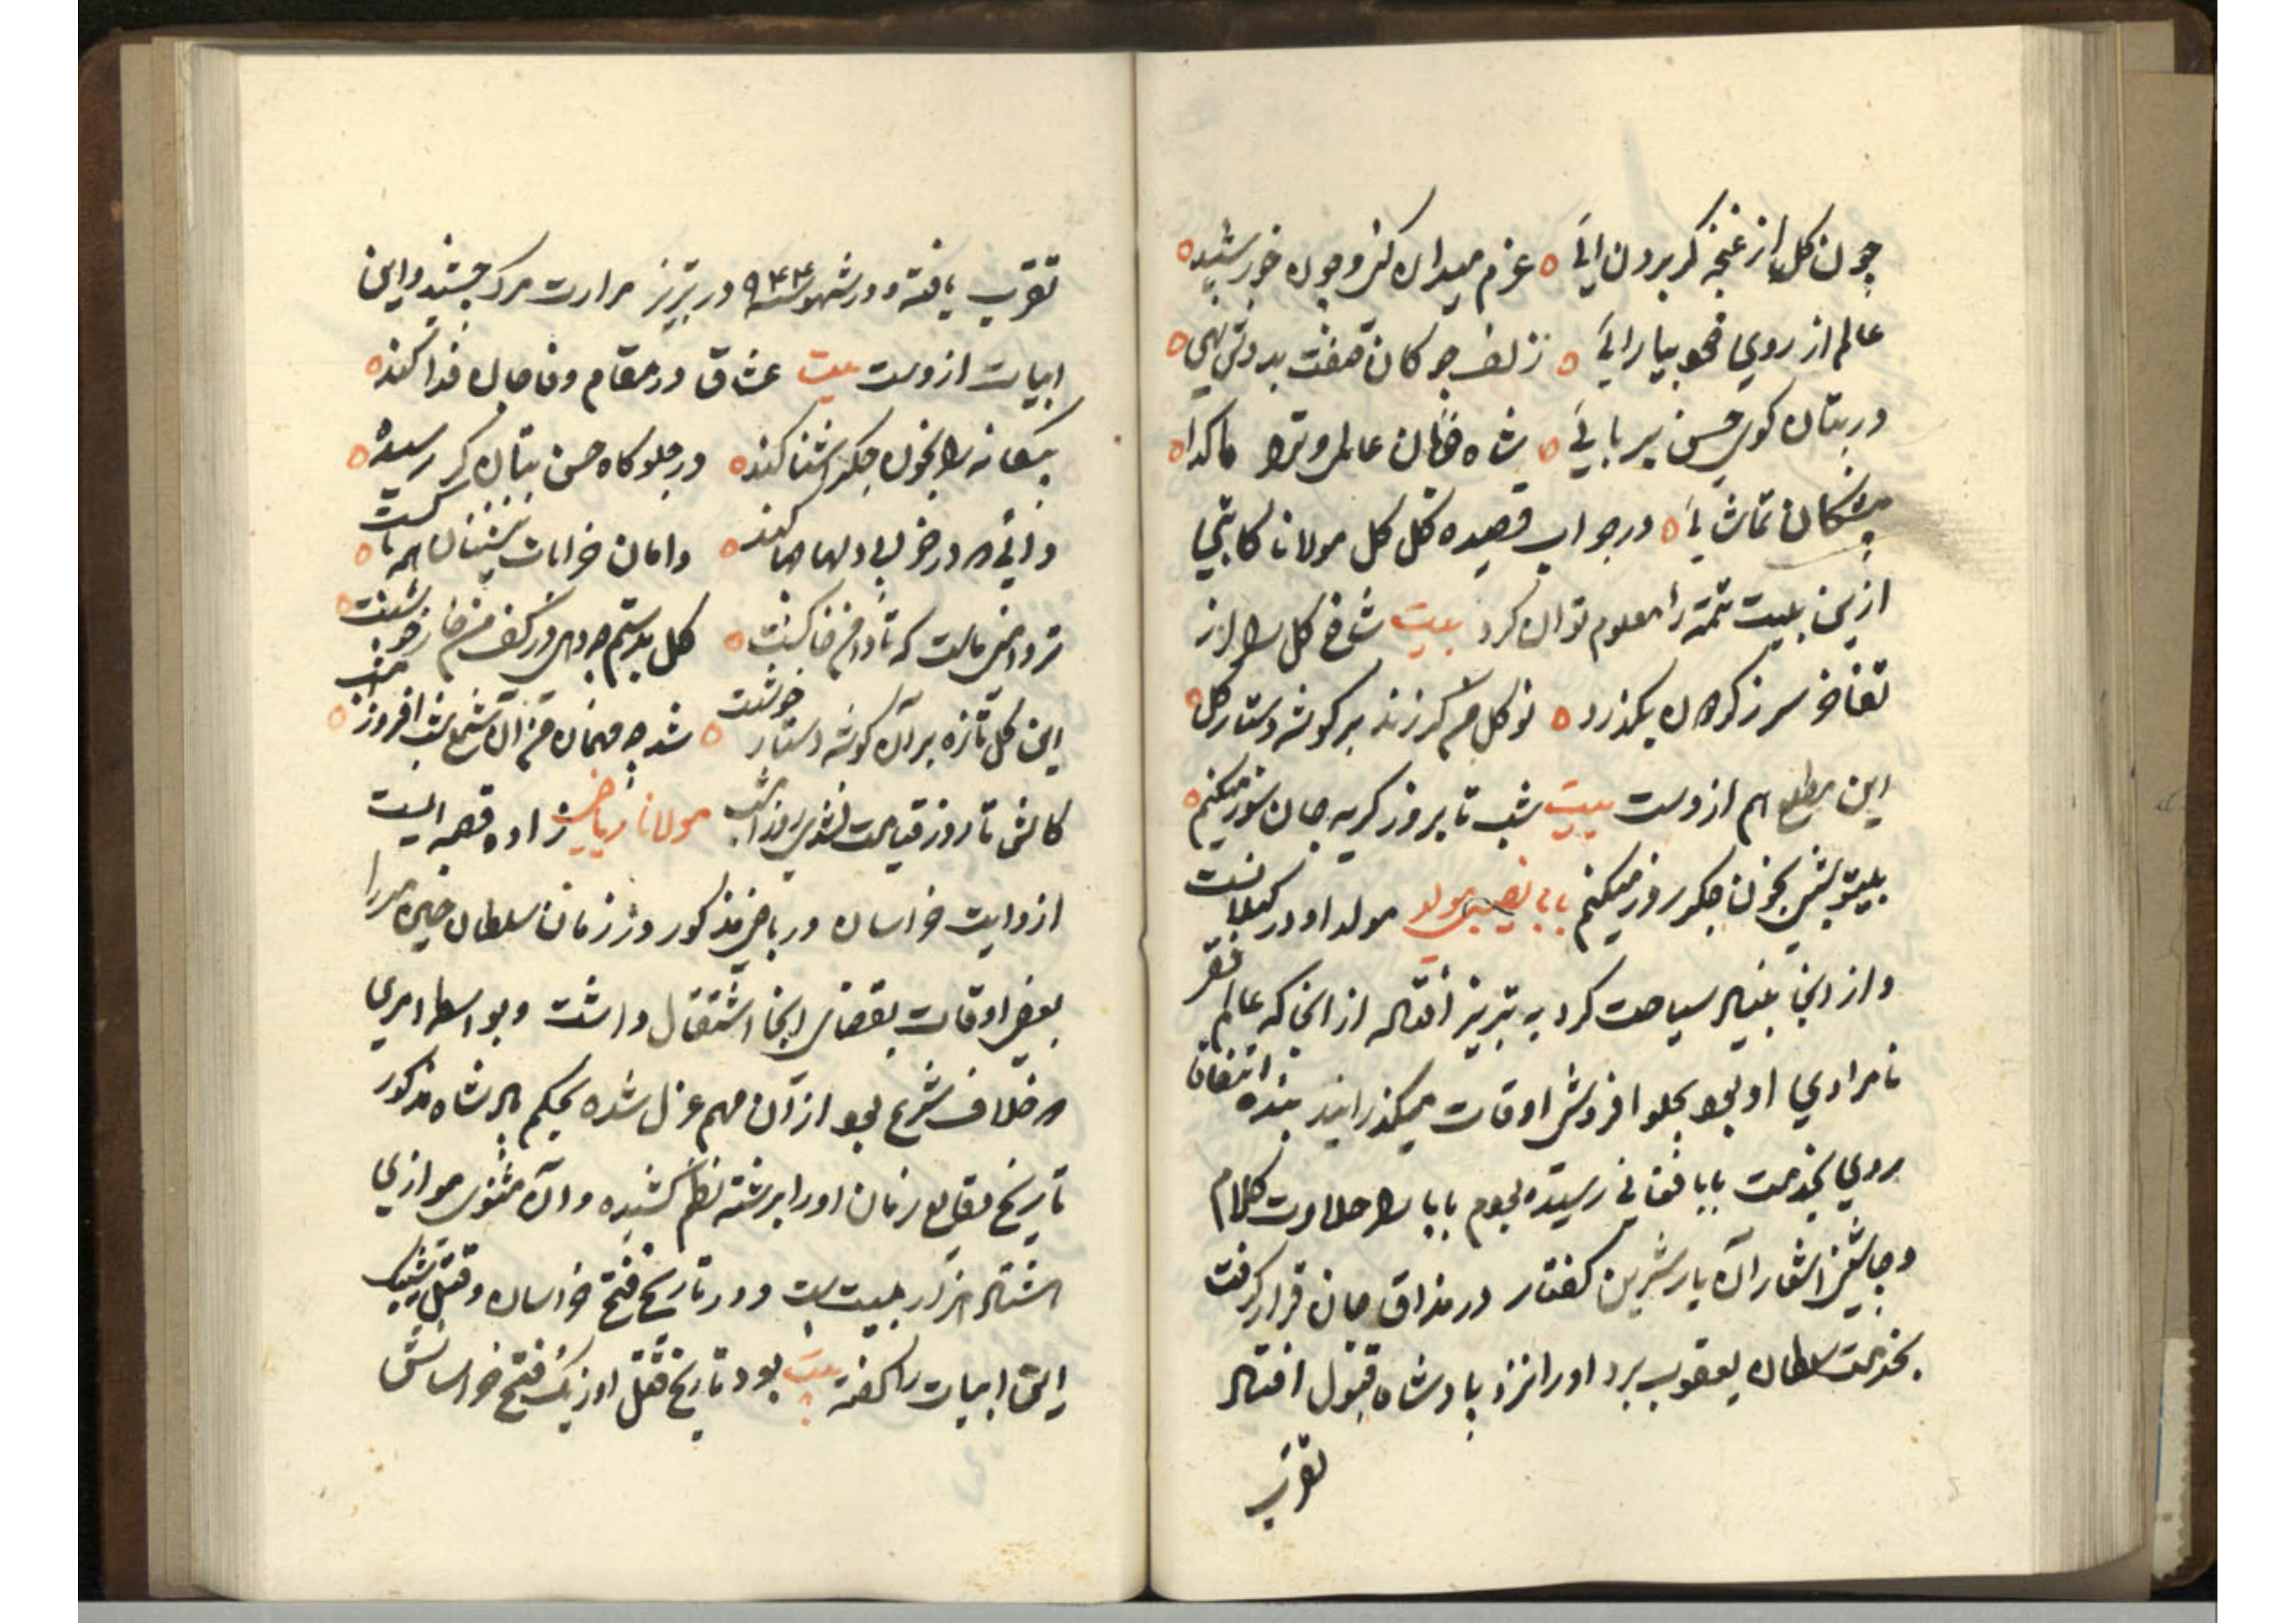 چون کل از غنچه کر برون ایی ه عزم میدان کن و چون خورشید ه
عالم از روی خود بیارایی ه زلف چوکان صفت بدوش نهی ه
در بتان کوی حسن بربایی ه شاه خوبان عالمی و ترا ماه کدا ه
بیشکان تماشایی ه در جواب قصیده کل کل مولانا کاتبی
ازین بیت تتمه را معلوم توان کرد بیت شاخ کل را از
تفاخر سر ز کردون بکذرد ه نوکل من کر زند بر کوشه دستار کل ه
این مطلع هم ازوست بیت شب تا بروز کریه جان سوز میکنم ه
بیتو شبی بخون جکر روز میکنم بابا نصیبی مولد مولد او در کیلانست
و از انجا بنیاد سیاحت کرد به تبریز افتاد از انجا که عالم فقر
نامرادی او بود بحلوا فروشی اوقات میکذرانید بنده اتفاق
روی بخدمت بابا فغانی رسیده بوم بابا را حلاوت کلام
و چاشنی اشعار آن یار شیرین کفتار در مذاق جان قرار کرفت
بخدمت سلطان یعقوب برد او را نزد پادشاه قبول افتاد
تقرب
تقرب یافته و در شهور سنه ۹۴۴ در تبریز مرارت مرک چشید و این
ابیات ازوست بیت عشاق در مقام وفا جان فدا کنند ه
بیکانه را بخون جکر اشنا کنند ه در جلوکاه حسن بتان کر رسیده ه
دانی که در خرابی دلها چها کنند ه دامان خرابات نشینان همه پاکست ه
تر دامنی ماست که تا دامن خاکست ه کل بدستم چو دهی در کف من خار خوشست ه
این کل تازه بر آن کوشه دستار خوشست ه شد چو مهمان من آن شمع شب افروز امشب ه
کاش تا روز قیامت نشدی روز امشب مولانا ریاضی زاده قصبه ایست
از ولایت خراسان و ریاضی مذکور در زمان سلطان حسین میرزا
بعضی اوقات بقضای انجا اشتغال داشت و بواسطه امری
که خلاف شرع بود از آن مهم عزل شده بحکم پادشاه مذکور
تاریخ وقایع زمان او را برشته نظم کشیده و آن مثنوی موازی
هشتاد هزار بیت است و در تاریخ فتح خراسان و قتل شیبک
این ابیات را کفته بیت بود تاریخ قتل اوزبک فتح خراسانش